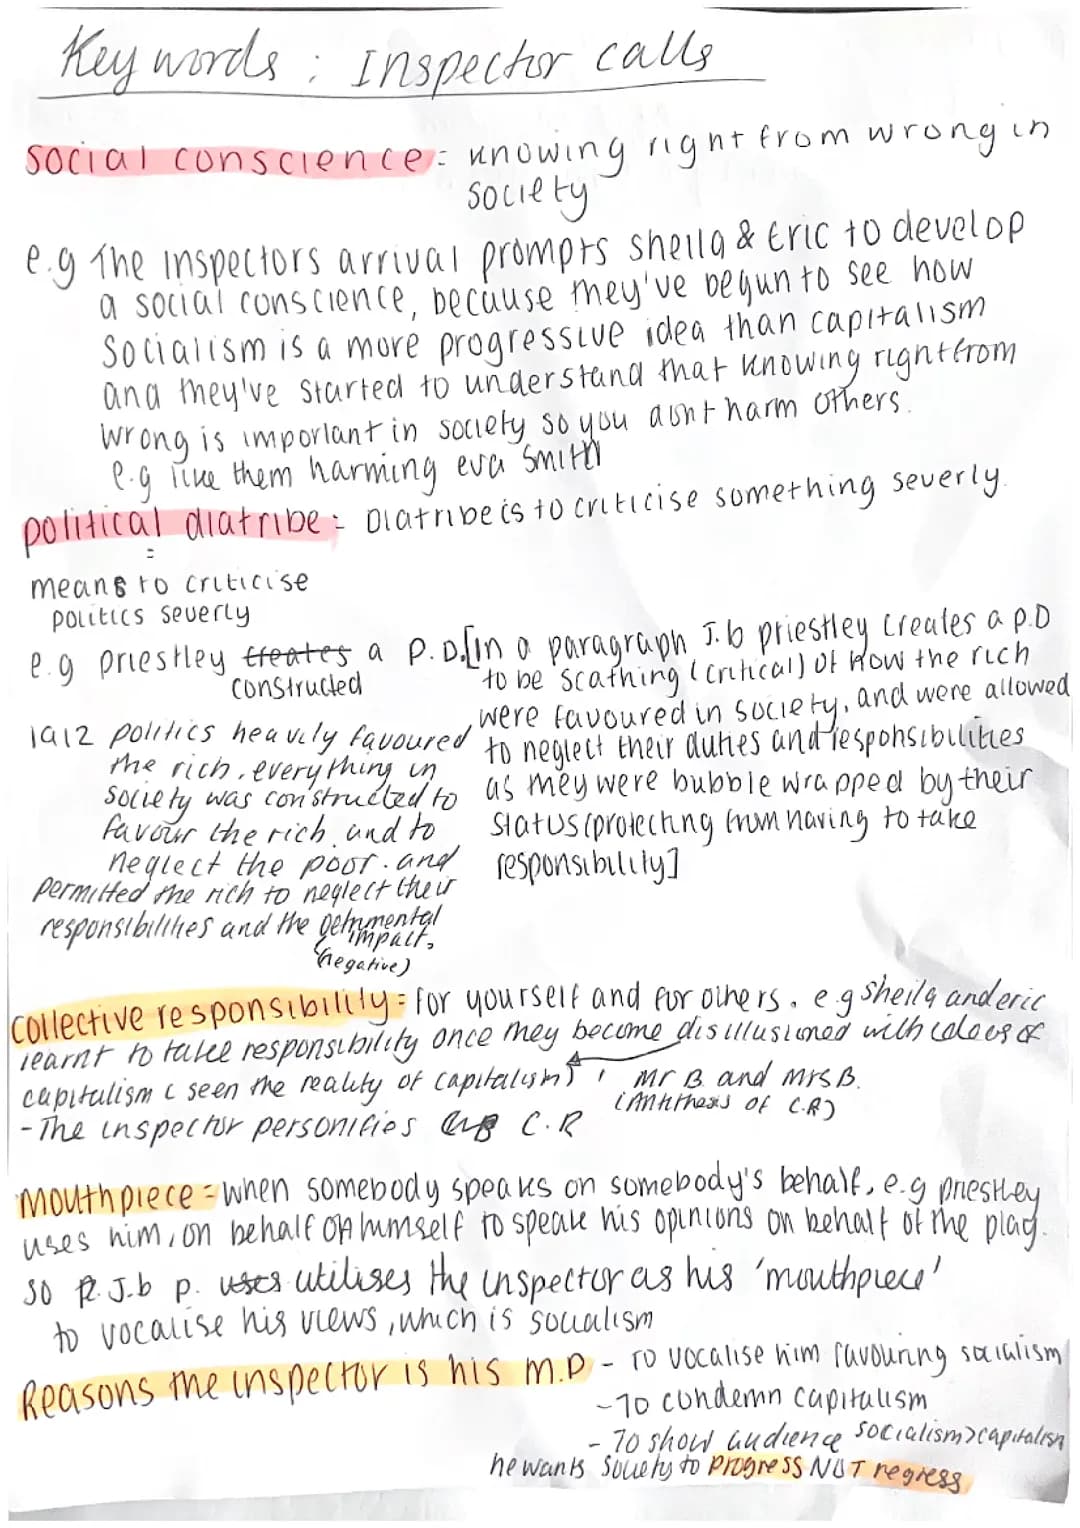 Key words : Inspector calls
social conscience = knowing right from wrong in
society
e.g The inspectors arrival prompts sheila & Eric to develop
a social conscience, because they've begun to see how
Socialism is a more progressive idea than capitalism
and they've started to understand that knowing right from
wrong is important in society so you dont harm others.
e.g like them harming eva Smith
political diatribe = Diatribe is to criticise something severly.
=
means to criticise
politics severly
e.g priestley creates a P.D.
constructed
1912 politics heavily favoured
the rich, everything in
society was constructed to
favour the rich, and to
neglect the poor. and
permitted the rich to neglect their
responsibilities and the detrimental
impact,
(negative)
[In a paragraph J.b priestley creates a p.D
to be scathing (critical) of how the rich
were favoured in society, and were allowed
to neglect their duties and responsibilities
as they were bubble wrapped by their
status (protecting from having to take
responsibility]
collective responsibility = for yourself and for others. e.g sheila and eric
learnt to take responsibility once they become disillusioned with ideas of
capitalism ( seen the reality of capitalism) , Mr B. and Mrs B.
(Antithesis of C.R)
- The inspector personifies C.R
Mouthpiece = when somebody speaks on somebody's behalf, e.g priestley
uses him, on behalf of himself to speak his opinions on behalf of the play.
so J.b p. uses utilises the inspector as his 'mouthpiece'
to vocalise his views, which is socialism
Reasons the inspector is his M.P - To vocalise him favouring socialism
- To condemn capitalism
- To show audience socialism>capitalism
he wants society to progress NOT regress